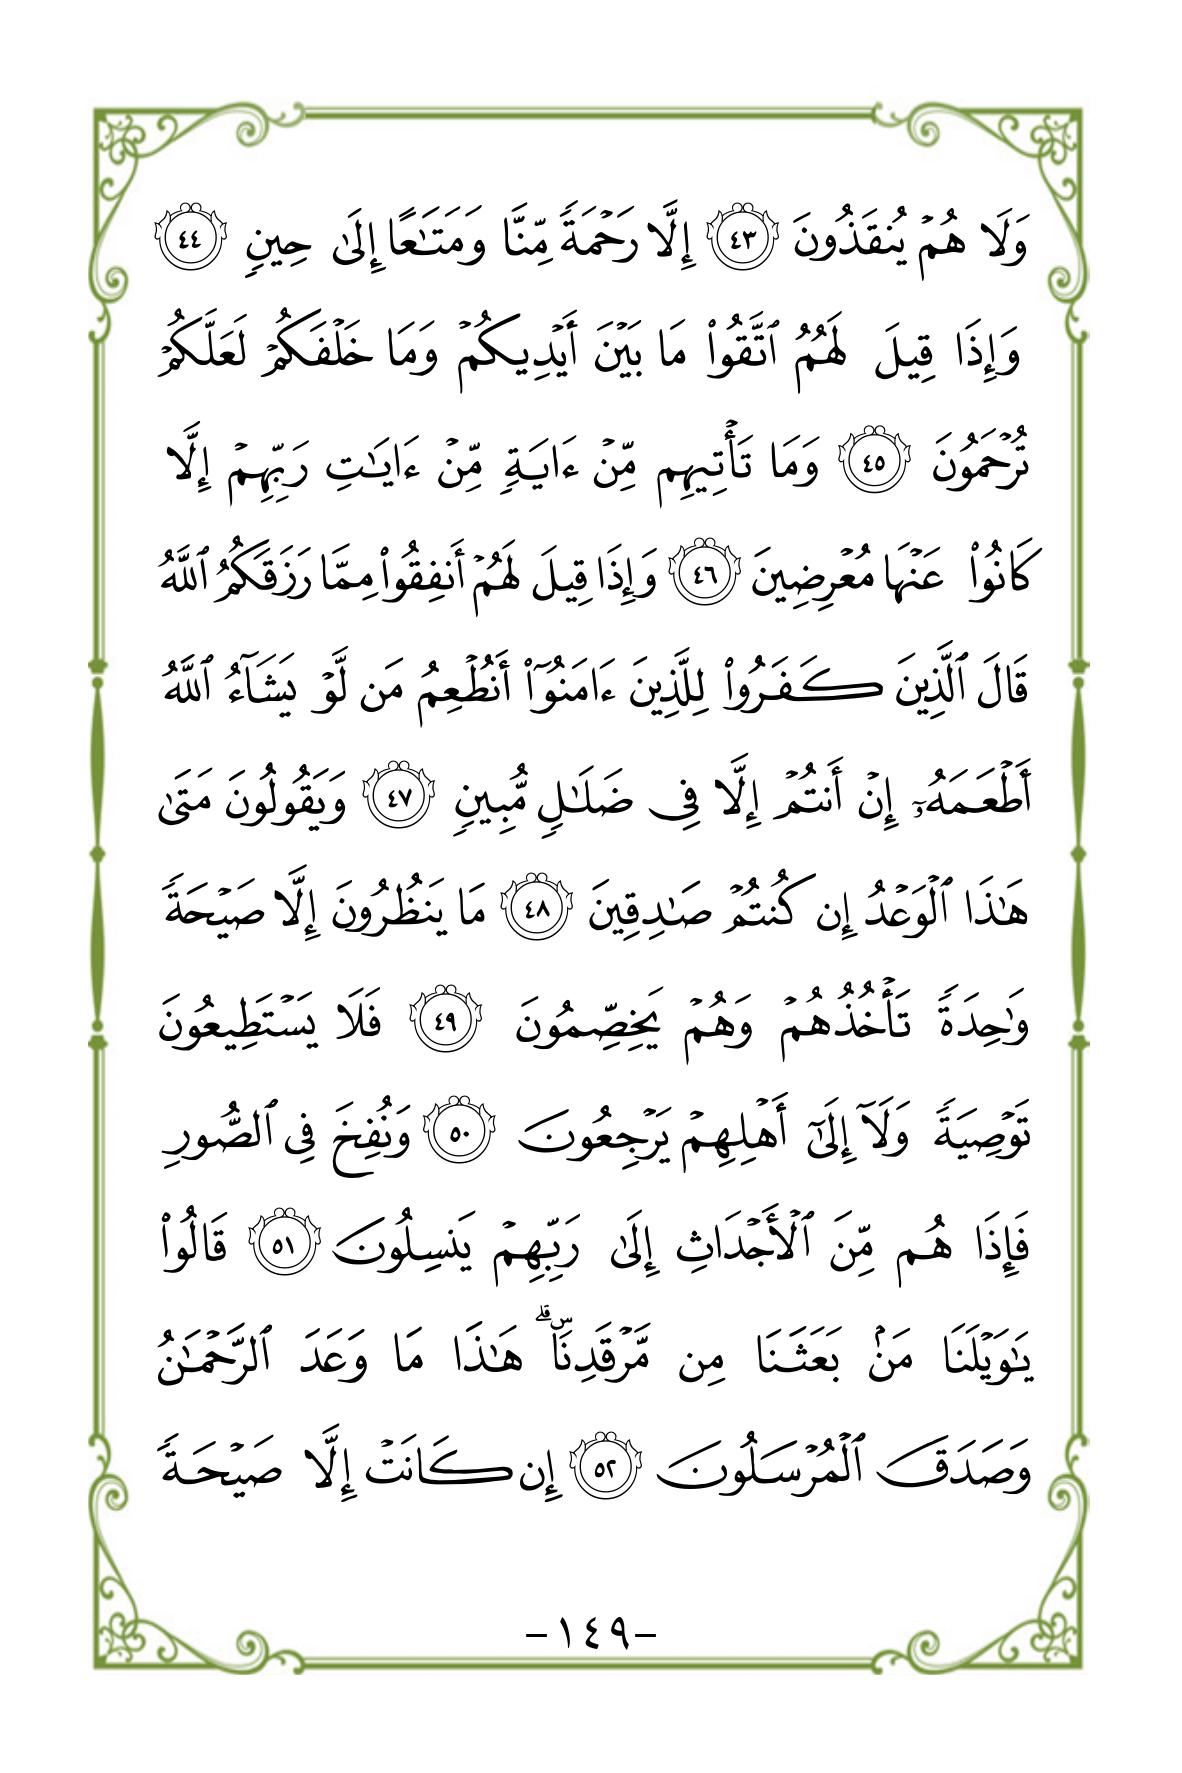 وَلَا هُمْ يُنقَذُونَ ٤٣ إِلَّا رَحْمَةً مِّنَّا وَمَتَٰعًا إِلَىٰ حِينٍ ٤٤
وَإِذَا قِيلَ لَهُمُ ٱتَّقُوا۟ مَا بَيْنَ أَيْدِيكُمْ وَمَا خَلْفَكُمْ لَعَلَّكُمْ
تُرْحَمُونَ ٤٥ وَمَا تَأْتِيهِم مِّنْ ءَايَةٍ مِّنْ ءَايَٰتِ رَبِّهِمْ إِلَّا
كَانُوا۟ عَنْهَا مُعْرِضِينَ ٤٦ وَإِذَا قِيلَ لَهُمْ أَنفِقُوا۟ مِمَّا رَزَقَكُمُ ٱللَّهُ
قَالَ ٱلَّذِينَ كَفَرُوا۟ لِلَّذِينَ ءَامَنُوٓا۟ أَنُطْعِمُ مَن لَّوْ يَشَآءُ ٱللَّهُ
أَطْعَمَهُۥٓ إِنْ أَنتُمْ إِلَّا فِى ضَلَٰلٍ مُّبِينٍ ٤٧ وَيَقُولُونَ مَتَىٰ
هَٰذَا ٱلْوَعْدُ إِن كُنتُمْ صَٰدِقِينَ ٤٨ مَا يَنظُرُونَ إِلَّا صَيْحَةً
وَٰحِدَةً تَأْخُذُهُمْ وَهُمْ يَخِصِّمُونَ ٤٩ فَلَا يَسْتَطِيعُونَ
تَوْصِيَةً وَلَآ إِلَىٰٓ أَهْلِهِمْ يَرْجِعُونَ ٥٠ وَنُفِخَ فِى ٱلصُّورِ
فَإِذَا هُم مِّنَ ٱلْأَجْدَاثِ إِلَىٰ رَبِّهِمْ يَنسِلُونَ ٥١ قَالُوا۟
يَٰوَيْلَنَا مَنۢ بَعَثَنَا مِن مَّرْقَدِنَاۜۗ هَٰذَا مَا وَعَدَ ٱلرَّحْمَٰنُ
وَصَدَقَ ٱلْمُرْسَلُونَ ٥٢ إِن كَانَتْ إِلَّا صَيْحَةً
-١٤٩-